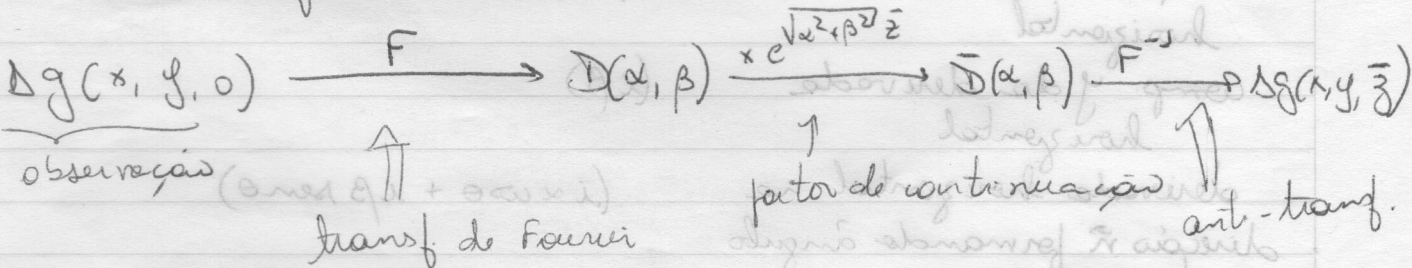 Δg(x, y, 0) F D(α, β) × e^{√(α²+β²) z̄} D̄(α, β) F⁻¹ Δg(x, y, z̄)
observação
transf. de Fourier fator de continuação anti-transf.